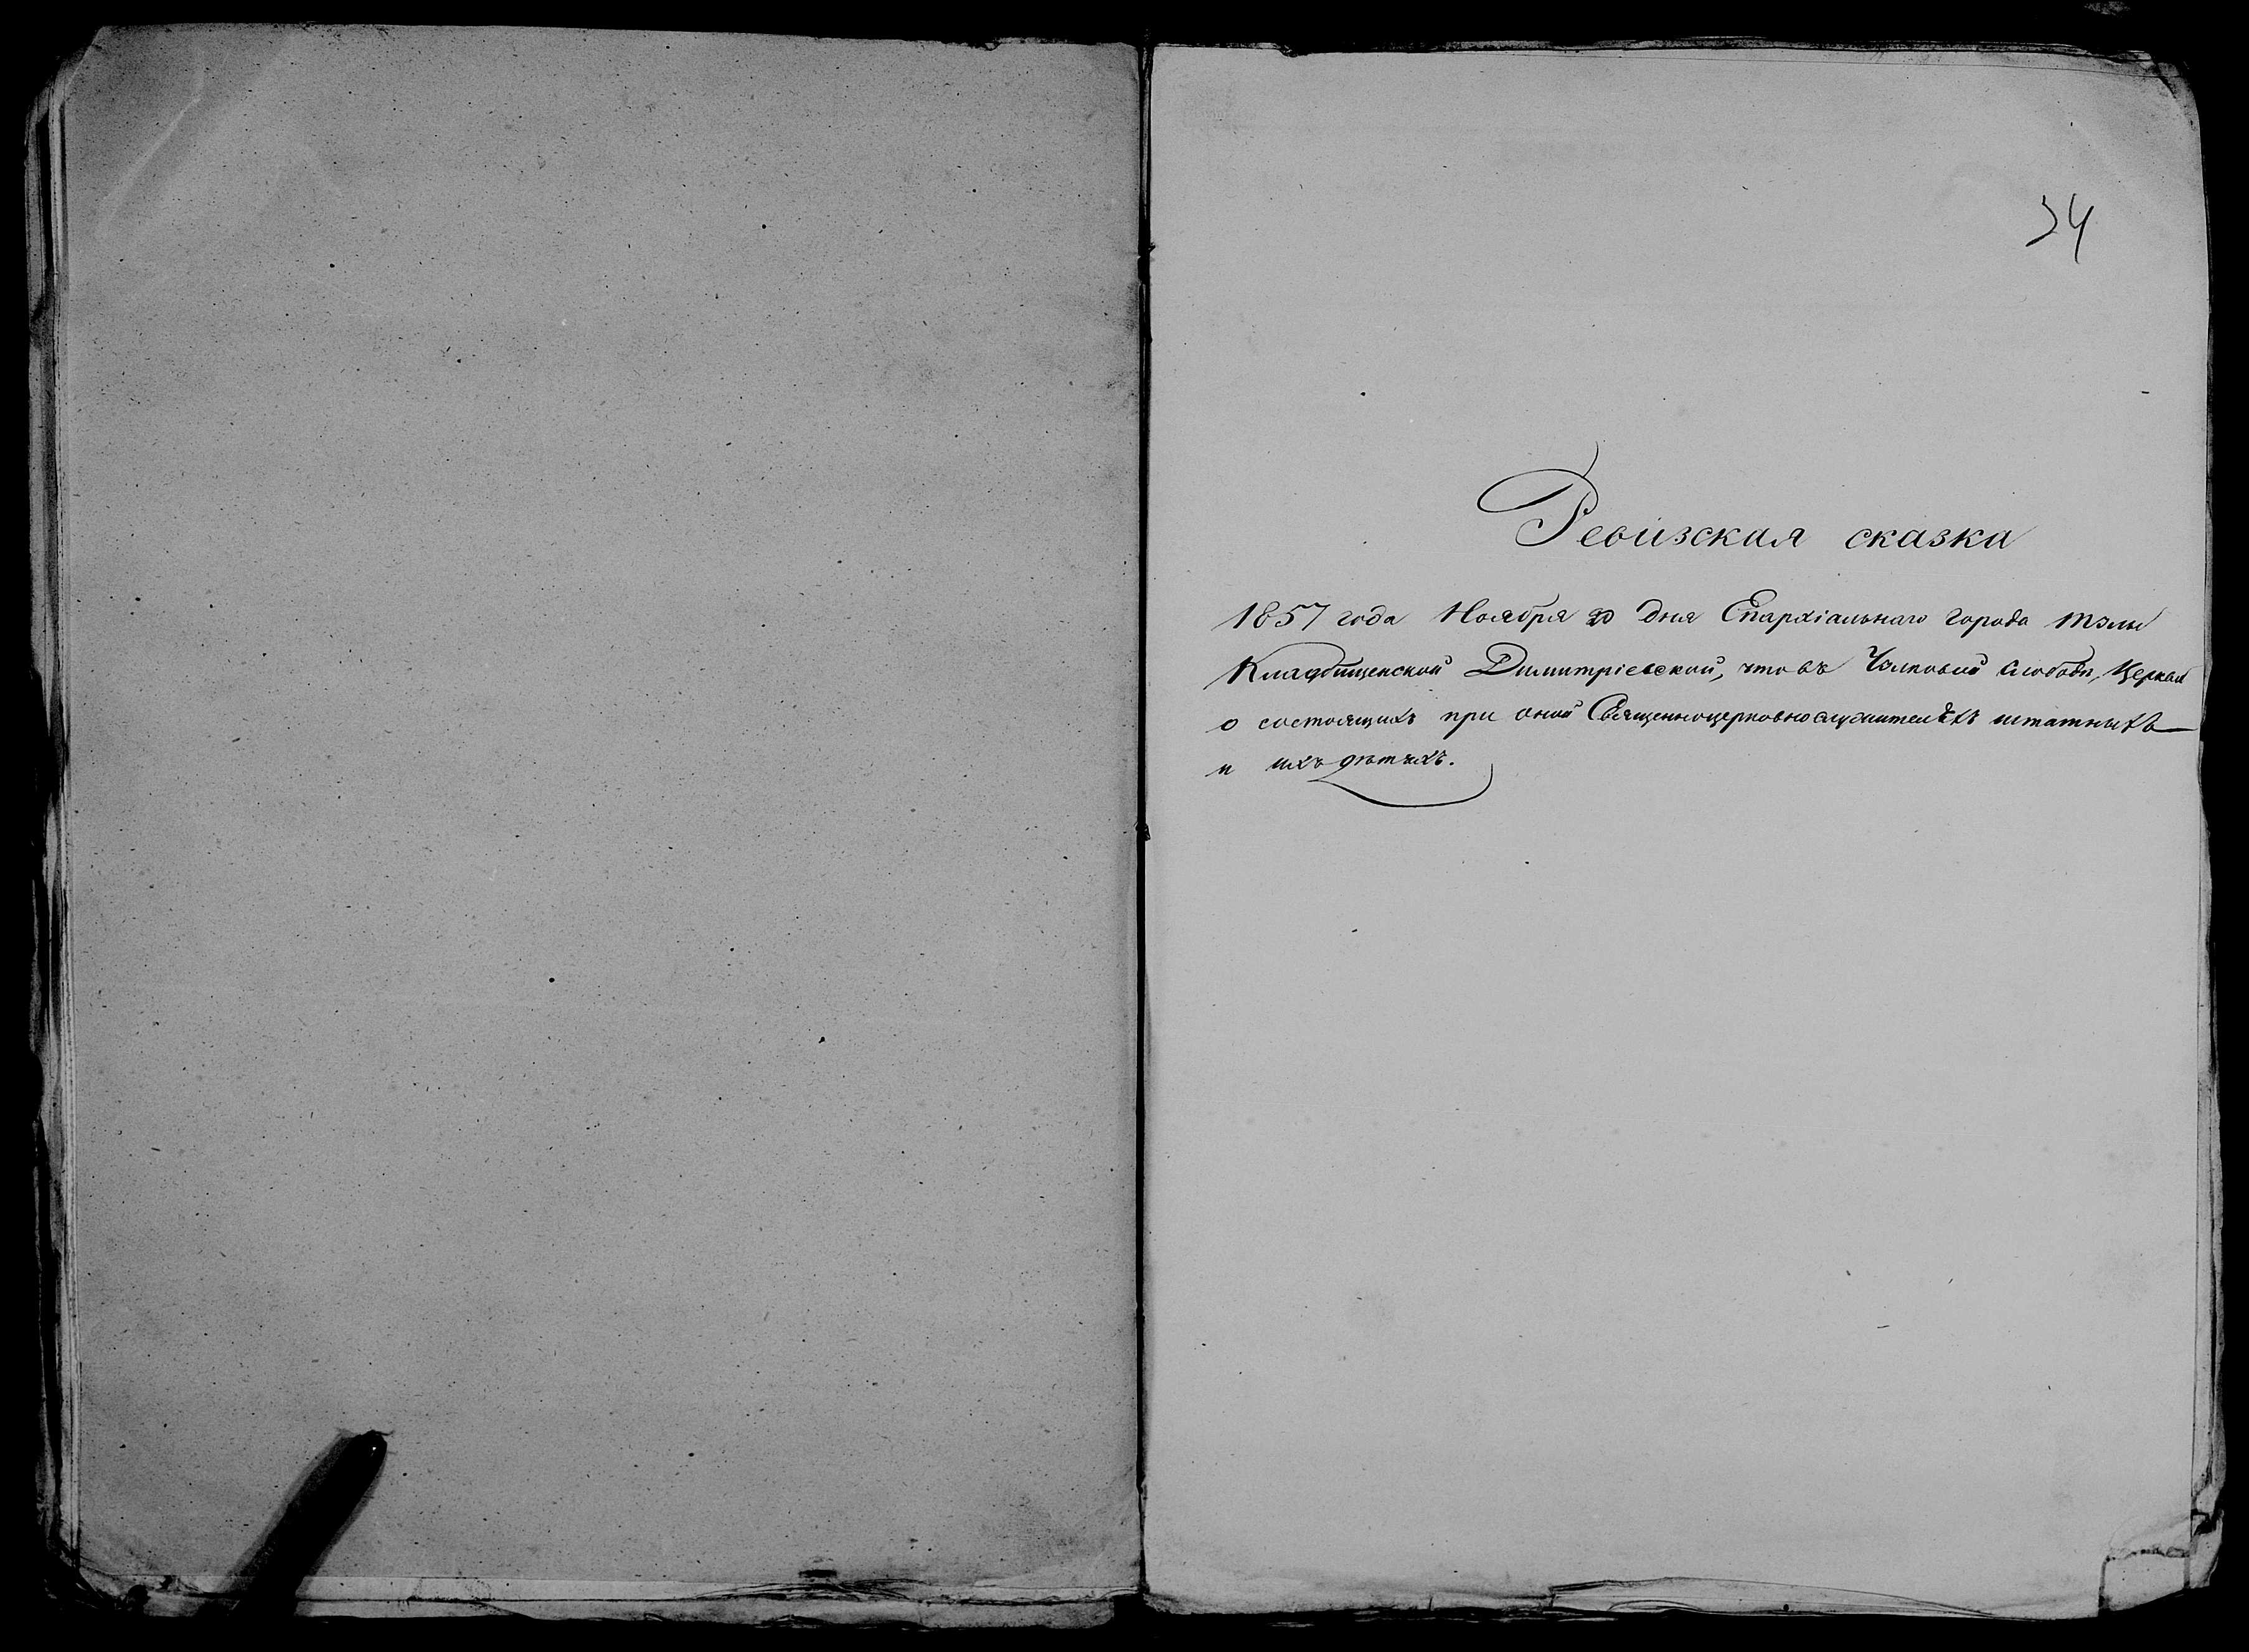 34
Ревизская сказка
1857 года Ноября 20 дня Епархіальнаго города Тулы
Кладбищенской Димитріевской, что въ Чулковой слободѣ, Церкви
о состоящихъ при оной Священноцерковнослужителѣхъ штатныхъ
и ихъ дѣтяхъ.